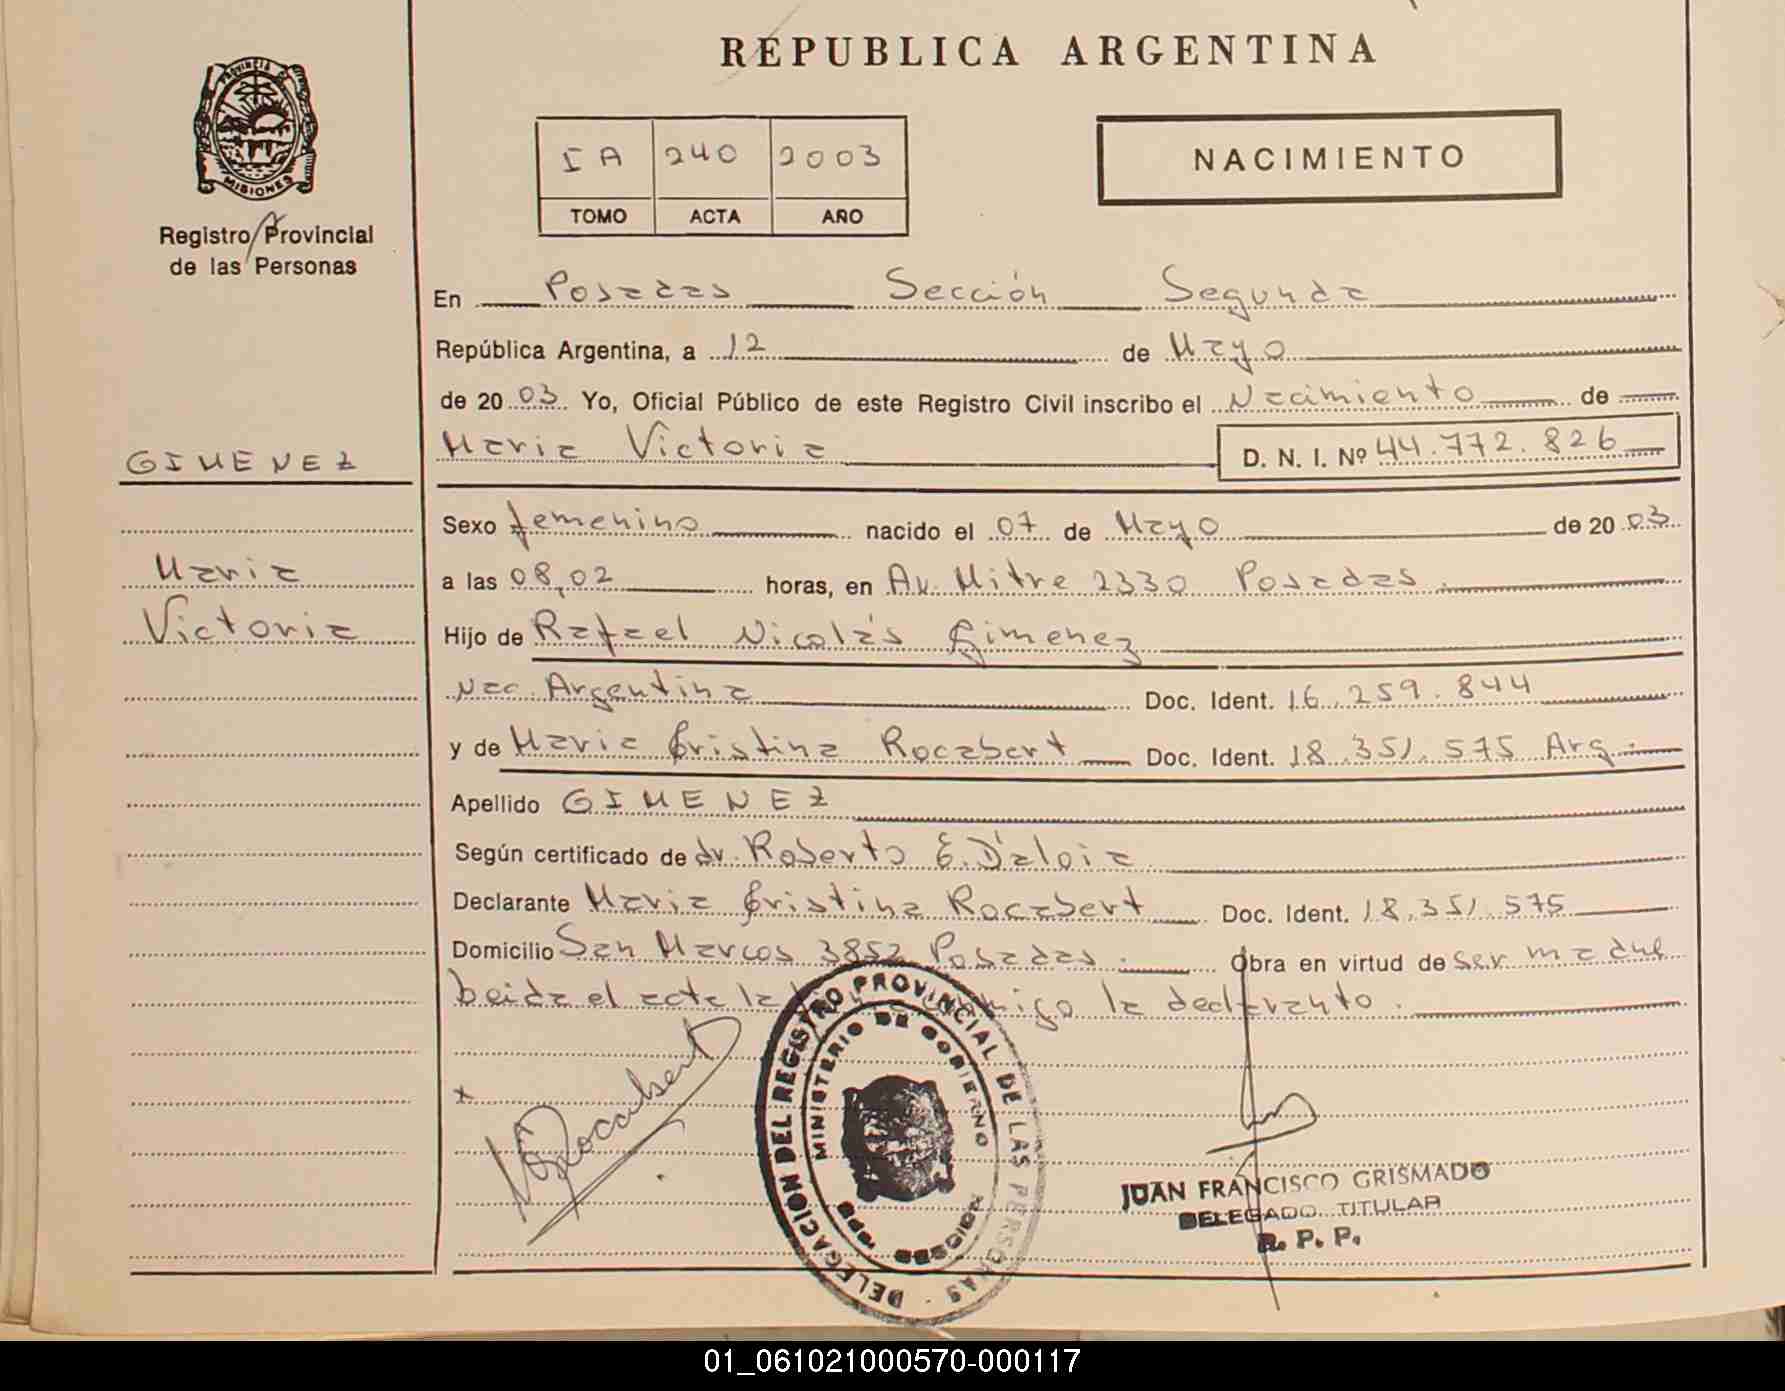 REPUBLICA ARGENTINA
PROVINCIA DE
MISIONES
Registro Provincial
de las Personas
IA 240 2003
TOMO ACTA AÑO
NACIMIENTO
En Posadas Sección Segunda
República Argentina, a 12 de Mayo
de 2003 Yo, Oficial Público de este Registro Civil inscribo el Nacimiento de
GIMENEZ
Maria Victoria D. N. I. Nº 44.772.826
Sexo femenino nacido el 07 de Mayo de 2003
Maria
a las 08,02 horas, en Av. Mitre 2330 Posadas.
Victoria
Hijo de Rafael Nicolás Gimenez
Nac. Argentina Doc. Ident. 16.259.844
y de Maria Cristina Rocabert Doc. Ident. 18.351.575 Arg.
Apellido GIMENEZ
Según certificado de dr. Roberto E. D'aloia
Declarante Maria Cristina Rocabert Doc. Ident. 18.351.575
Domicilio San Marcos 3852 Posadas. Obra en virtud de ser madre
leida el acta la conmigo la declarante.
x
Rocabert
DELEGACION DEL REGISTRO PROVINCIAL DE LAS PERSONAS
MINISTERIO DE GOBIERNO
MISIONES
JUAN FRANCISCO GRISMADO
DELEGADO TITULAR
R. P. P.
01_061021000570-000117